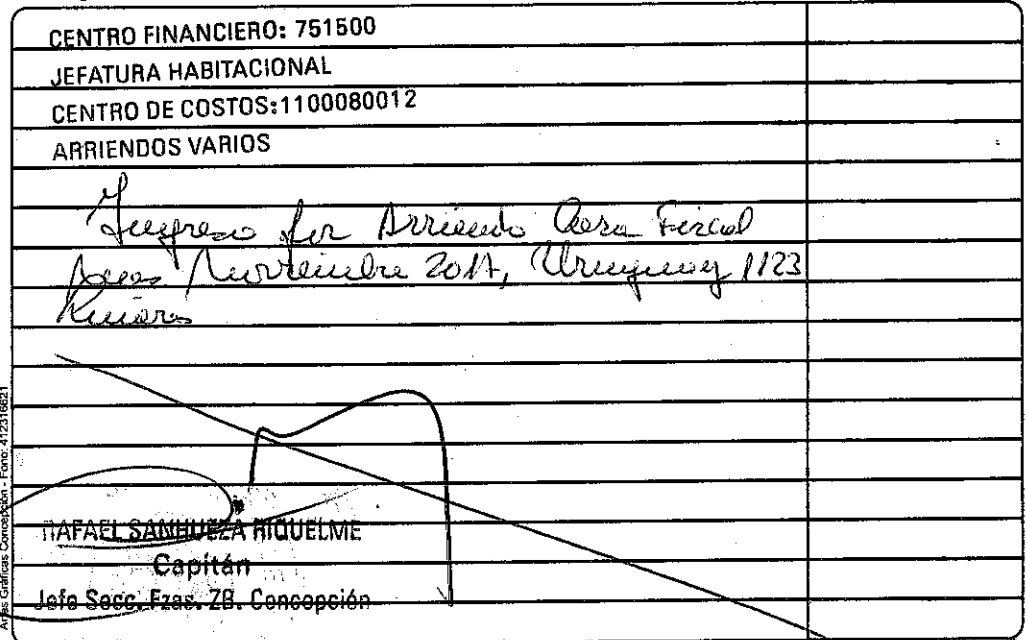 CENTRO FINANCIERO: 751500
JEFATURA HABITACIONAL
CENTRO DE COSTOS:1100080012
ARRIENDOS VARIOS
Ingreso por Arriendo Casa Fiscal
Noviembre 2017, Uruguay 1123
RAFAEL SANHUEZA RIQUELME
Capitán
Jefe Secc. Fzas. ZB. Concepción
Artes Gráficas Concepción - Fono: 412316621